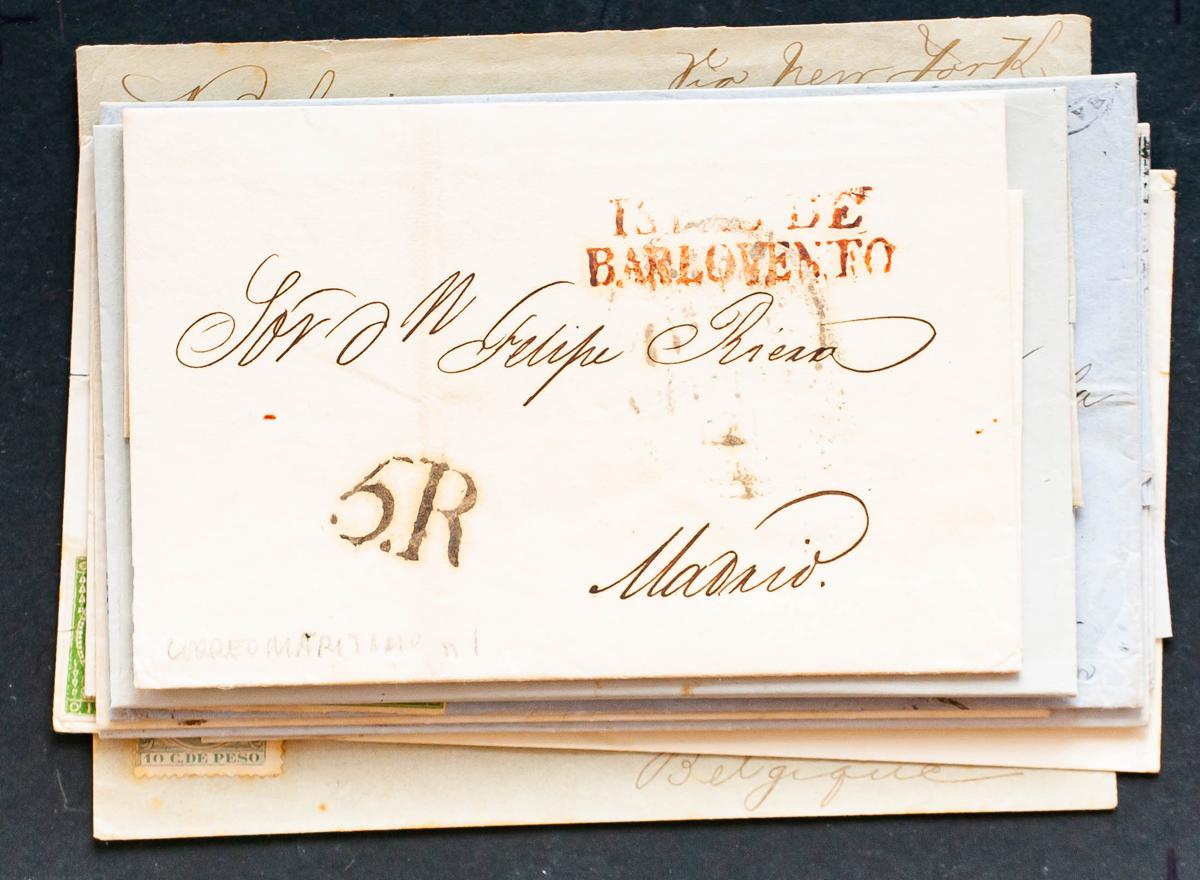 Via New York
ISLAS DE
BARLOVENTO
Sor dn Felipe Riera
5.R
Madrid.
CORREO MARITIMO n 1
10 C. DE PESO
Belgique